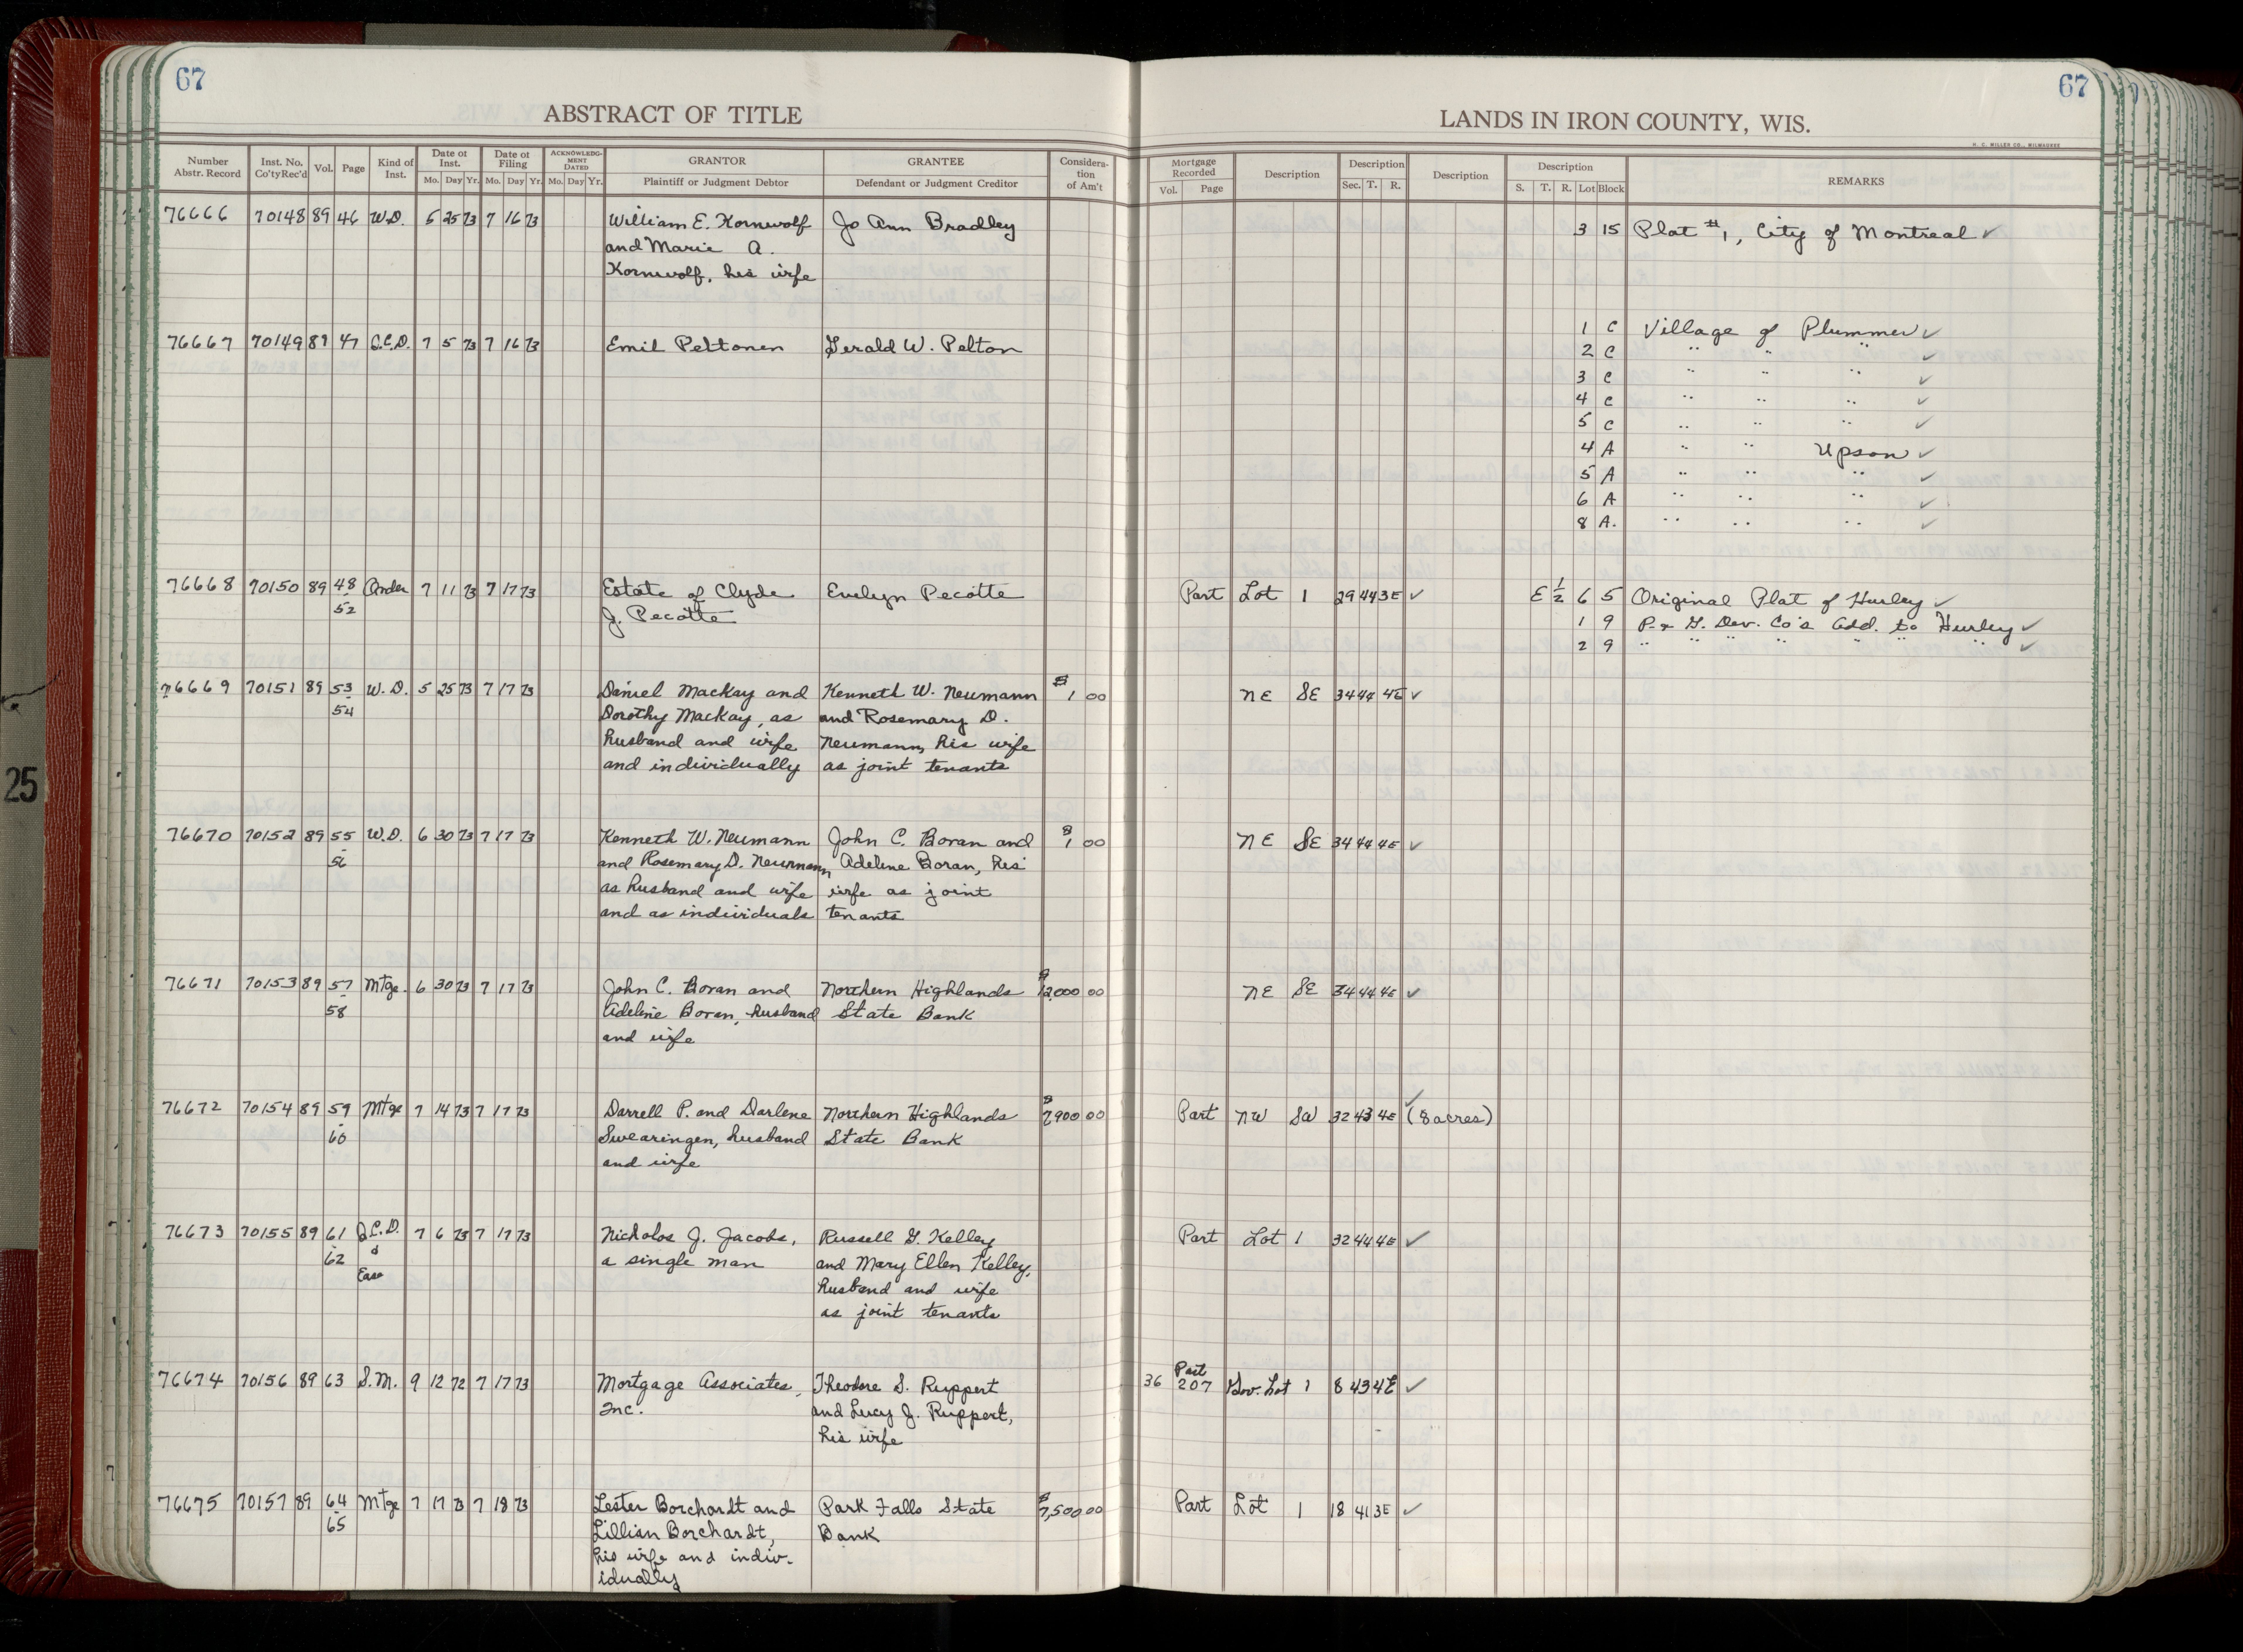 67
67
ABSTRACT OF TITLE
LANDS IN IRON COUNTY, WIS.
H. C. MILLER CO., MILWAUKEE
Number Abstr. Record | Inst. No. Co'ty Rec'd | Vol. | Page | Kind of Inst. | Date of Inst. Mo. Day Yr. | Date of Filing Mo. Day Yr. | ACKNOWLEDGMENT DATED Mo. Day Yr. | GRANTOR Plaintiff or Judgment Debtor | GRANTEE Defendant or Judgment Creditor | Consideration of Am't | Mortgage Recorded Vol. Page | Description | Description Sec. T. R. | Description | Description S. T. R. Lot Block | REMARKS
76666 70148 89 46 W.D. 5 25 73 7 16 73 William E. Kornwolf | Jo Ann Bradley | 3 15 Plat #1, City of Montreal ✓
and Marie A.
Kornwolf, his wife
1 C Village of Plummer ✓
76667 70149 89 47 Q.C.D. 7 5 73 7 16 73 Emil Peltonen | Gerald W. Pelton | 2 C " " " ✓
3 C " " " ✓
4 C " " " ✓
5 C " " " ✓
4 A " " Upson ✓
5 A " " " ✓
6 A " " " ✓
8 A. " " " ✓
76668 70150 89 48 Order 7 11 73 7 17 73 Estate of Clyde | Evelyn Pecotte | Part Lot 1 29 44 3E ✓ E 1/2 6 5 Original Plat of Hurley ✓
- 52 J. Pecotte | 1 9 P. & G. Dev. Co's Add. to Hurley ✓
2 9 " " " " " " " ✓
76669 70151 89 53 W.D. 5 25 73 7 17 73 Daniel MacKay and | Kenneth W. Neumann | $1 00 | NE SE 34 44 4E ✓
- 54 Dorothy MacKay, as | and Rosemary D.
husband and wife | Neumann, his wife
and individually | as joint tenants
76670 70152 89 55 W.D. 6 30 73 7 17 73 Kenneth W. Neumann | John C. Boran and | $1 00 | NE SE 34 44 4E ✓
- 56 and Rosemary D. Neumann | Adeline Boran, his
as husband and wife | wife as joint
and as individuals | tenants
76671 70153 89 57 Mtge. 6 30 73 7 17 73 John C. Boran and | Northern Highlands | $12,000 00 | NE SE 34 44 4E ✓
- 58 Adeline Boran, husband | State Bank
and wife
76672 70154 89 59 Mtge 7 14 73 7 17 73 Darrell P. and Darlene | Northern Highlands | $7,900 00 | Part NW SW 32 43 4E ✓ (8 acres)
- 60 Swearingen, husband | State Bank
and wife
76673 70155 89 61 Q.C.D. 7 6 73 7 17 73 Nicholos J. Jacobs, | Russell G. Kelley | Part Lot 1 32 44 4E ✓
- 62 & a single man | and Mary Ellen Kelley,
Ease | husband and wife
as joint tenants
76674 70156 89 63 S.M. 9 12 72 7 17 73 Mortgage Associates, | Theodore S. Ruppert | 36 207 Part Gov. Lot 1 8 43 4E ✓
Inc. | and Lucy J. Ruppert,
his wife
76675 70157 89 64 Mtge 7 17 73 7 18 73 Lester Borchardt and | Park Falls State | $7,500 00 | Part Lot 1 18 41 3E ✓
- 65 Lillian Borchardt, | Bank
his wife and indiv-
idually
25